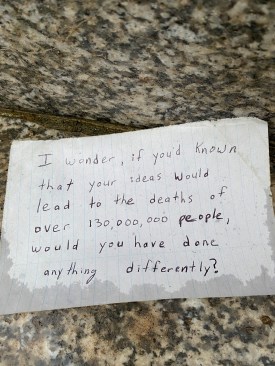 I wonder, if you'd known
that your ideas would
lead to the deaths of
over 130,000,000 people,
would you have done
anything differently?